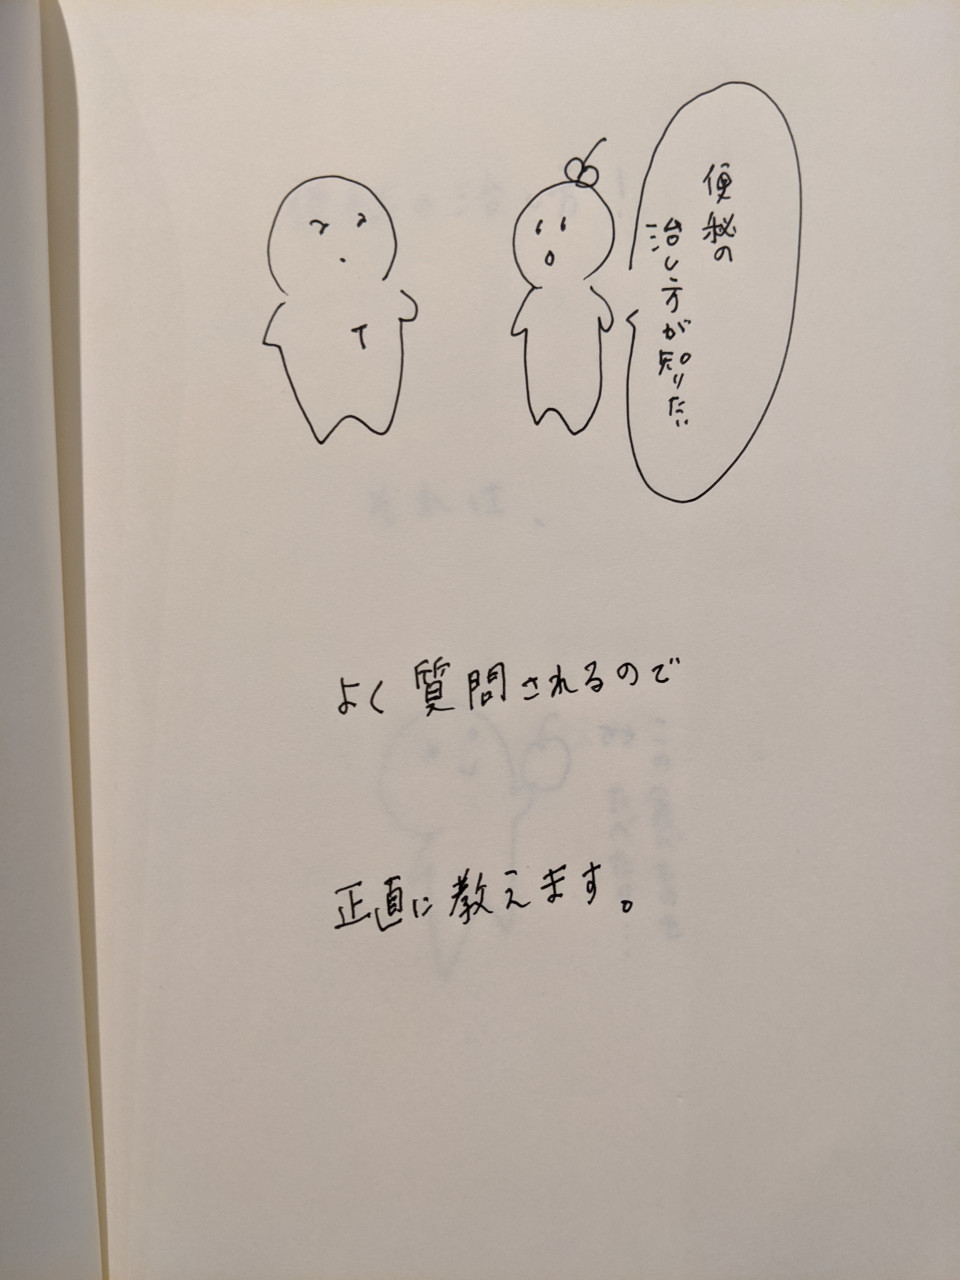 便秘の
治し方が知りたい
T
よく質問されるので
正直に教えます。